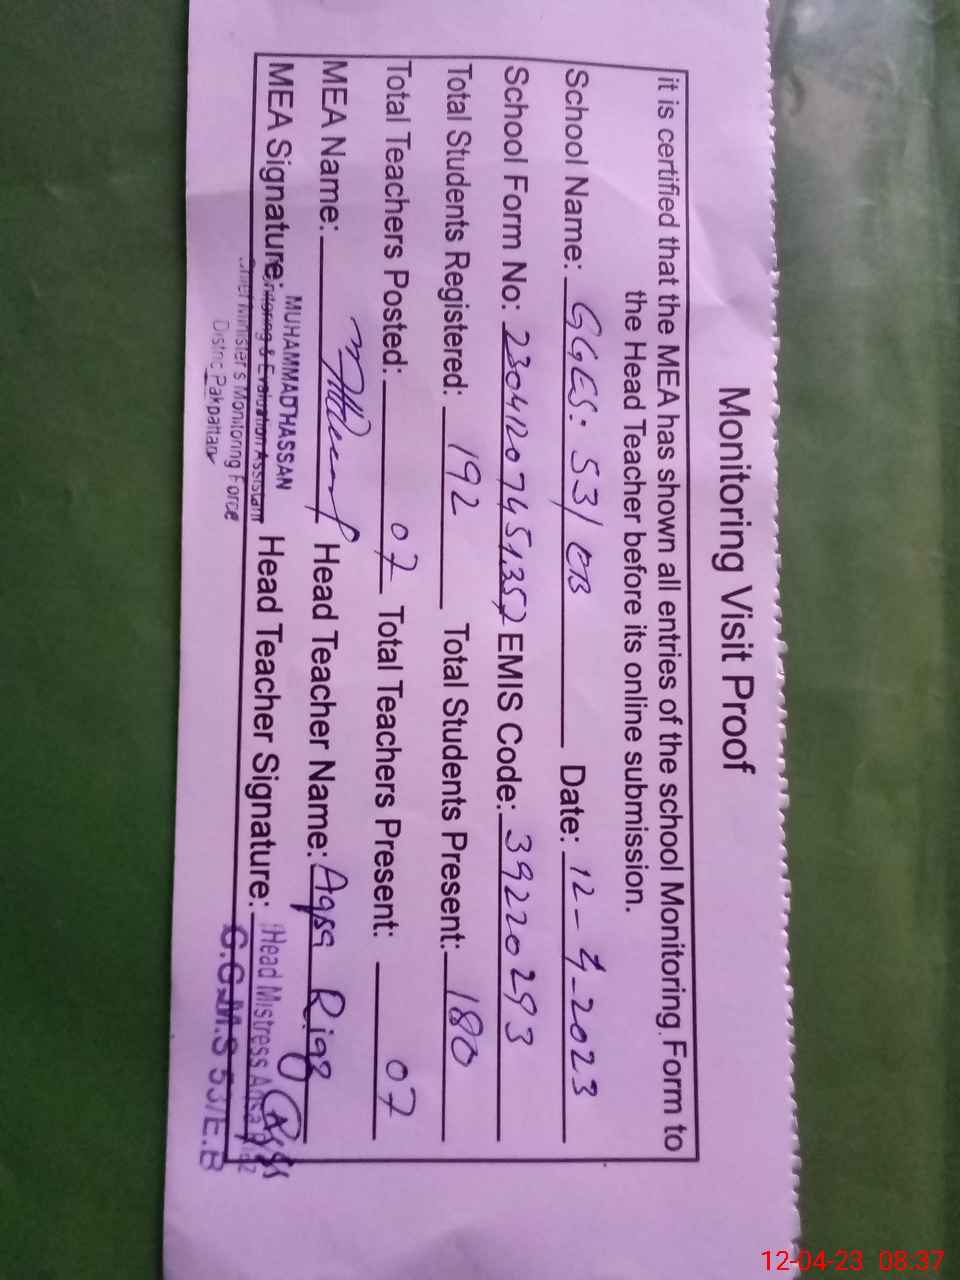 Monitoring Visit Proof
it is certified that the MEA has shown all entries of the school Monitoring Form to
the Head Teacher before its online submission.
School Name: GGES: 53/EB Date: 12-4-2023
School Form No: 23041207451352 EMIS Code: 39220293
Total Students Registered: 192 Total Students Present: 180
Total Teachers Posted: 07 Total Teachers Present: 07
MEA Name: Head Teacher Name: Aqsa Riaz
MEA Signature: Head Teacher Signature:
MUHAMMAD HASSAN
Monitoring & Evaluation Assistant
Chief Minister's Monitoring Force
District Pakpattan
Head Mistress
G.G.M.S 53/E.B
12-04-23 08:37